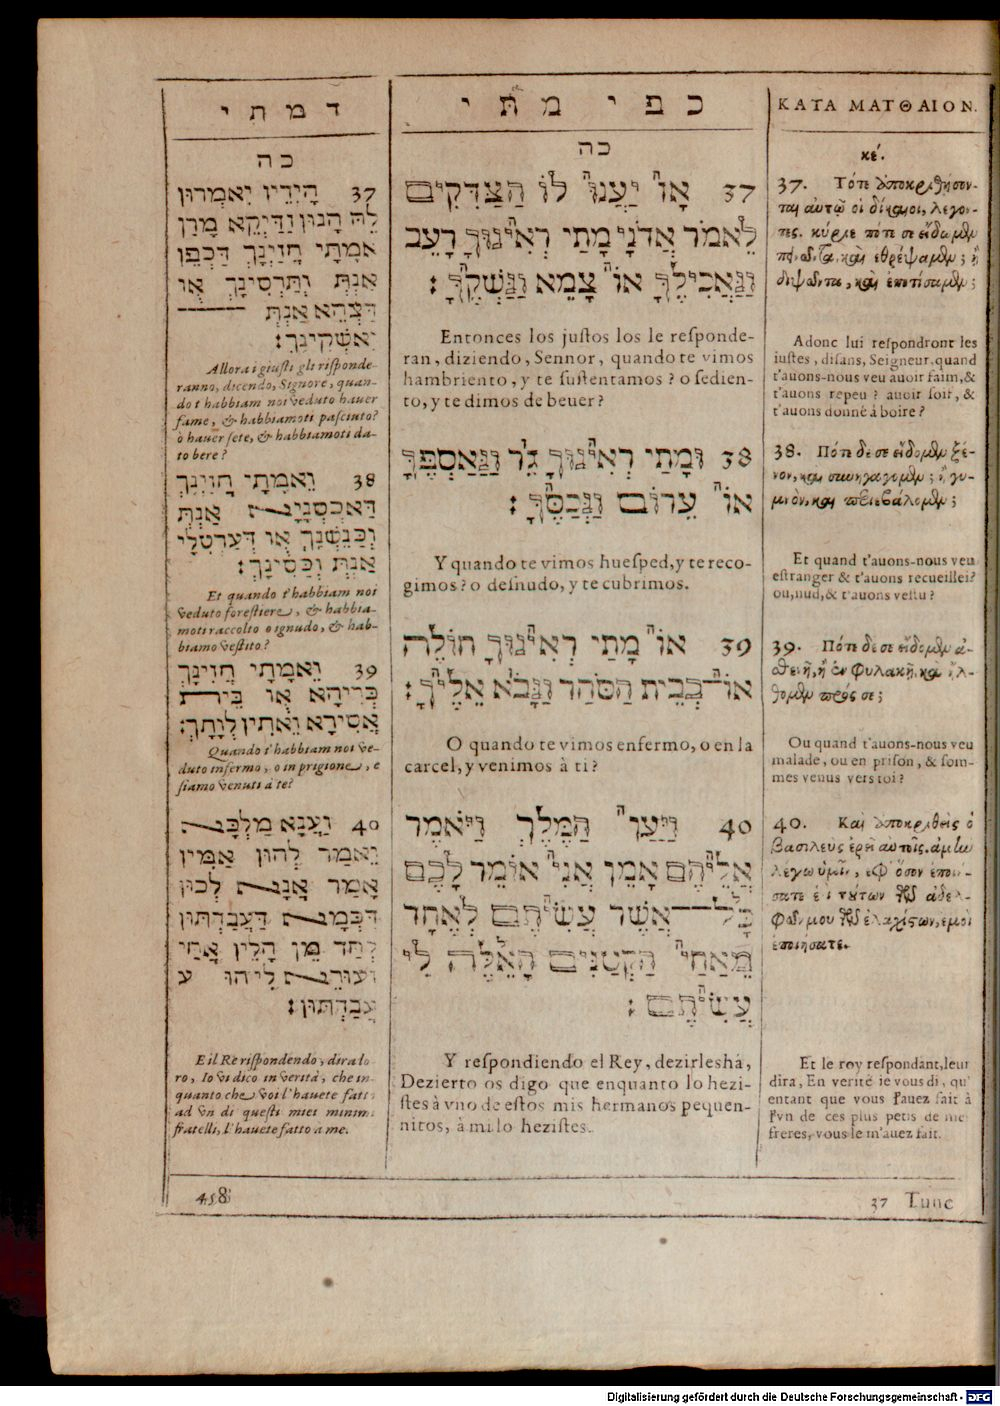 דמתי
כה
37 הָידֵיו יִאמְרוּן
לֵהּ הָנוּן וַדַּיְקֵא מָרַן
אִמַתָי חֲזַיְנָךְ דְּכְפֵן
אַנְתְּ וְתַרְסִינָךְ אוּ
דַּצְהֵא אַנְתְּ
וְאַשְׁקִינָךְ׃
Allora i giusti gli risponde-
ranno, dicendo, Signore, quan-
do t'habbiam noi veduto hauer
fame, & habbiamoti pasciuto?
ò hauer sete, & habbiamoti da-
to bere?
38 וֵאִמַתָי חֲזַיְנָךְ
דַּאכְסְנָיָא אַנְתְּ
וְכַנֵשְׁנָךְ אוּ דְּעַרְטְלָי
אַנְתְּ וְכַסִינָךְ׃
Et quando t'habbiam noi
veduto forestiere, & habbia-
moti raccolto o ignudo, & hab-
biamo vestito?
39 וֵאִמַתָי חֲזַיְנָךְ
כְּרִיהָא אוּ בֵּית
אֲסִירָא וֵאתַיְן לְוָתָךְ׃
Quando t'habbiam noi ve-
duto infermo, o in prigione, e
siamo venuti à te?
40 וַעֲנָא מַלְכָּא
וֵאמַר לְהוּן אַמִין
אָמַר אֲנָא לְכוּן
דִּכְמָא דַּעֲבַדְתּוּן
לְחַד מֵן הָלֵין אֲחַי
זְעוּרֵא לִי הוּ ע
עֲבַדְתּוּן׃
E il Re rispondendo, dira lo-
ro, Io vi dico in verità, che in-
quanto che voi l'hauete fatto
ad vn di questi miei minimi
fratelli, l'hauete fatto a me.
כפי מתי
כה
37 אָז יַעֲנוּ לוֹ הַצַּדִּקִים
לֵאמֹר אֲדֹנָי מָתַי רְאִינוּךָ רָעֵב
וַנַּאֲכִילֶךָּ אוֹ צָמֵא וַנַּשְׁקֶךָּ׃
Entonces los justos los le responde-
ran, diziendo, Sennor, quando te vimos
hambriento, y te sustentamos? o sedien-
to, y te dimos de beuer?
38 וּמָתַי רְאִינוּךָ גֵּר וַנַּאַסְפֶךָּ
אוֹ עֵרוֹם וַנְּכַסֶּךָּ׃
Y quando te vimos huesped, y te reco-
gimos? o desnudo, y te cubrimos.
39 אוֹ מָתַי רְאִינוּךָ חוֹלֶה
אוֹ בְּבֵית הַסֹּהַר וַנָּבֹא אֵלֶיךָ׃
O quando te vimos enfermo, o en la
carcel, y venimos à ti?
40 וַיַּעַן הַמֶּלֶךְ וַיֹּאמֶר
אֲלֵיהֶם אָמֵן אֲנִי אוֹמֵר לָכֶם
כָּל אֲשֶׁר עֲשִׂיתֶם לְאֶחָד
מֵאַחַי הַקְּטַנִּים הָאֵלֶּה לִי
עֲשִׂיתֶם׃
Y respondiendo el Rey, dezirleshà,
Dezierto os digo que enquanto lo hezi-
stes à vno de estos mis hermanos pequen-
nitos, à mi lo hezistes.
ΚΑΤΑ ΜΑΤΘΑΙΟΝ.
κέ.
37. Τότε ἀποκριθήσον-
ται αὐτῷ οἱ δίκαιοι, λέγον-
τες. κύριε πότε σε εἴδομεν
πεινῶντα, καὶ ἐθρέψαμεν; ἢ
διψῶντα, καὶ ἐποτίσαμεν;
Adonc lui respondront les
iustes, disans, Seigneur, quand
t'auons-nous veu auoir faim, &
t'auons repeu? auoir soif, &
t'auons donné à boire?
38. Πότε δὲ σε εἴδομεν ξέ-
νον, καὶ συνηγάγομεν; ἢ γυ-
μνὸν, καὶ περιεβάλομεν;
Et quand t'auons-nous veu
estranger & t'auons recueilli?
ou, nud, & t'auons vestu?
39. Πότε δὲ σε εἴδομεν ἀ-
σθενῆ, ἢ ἐν φυλακῇ, καὶ ἤλ-
θομεν πρός σε;
Ou quand t'auons-nous veu
malade, ou en prison, & som-
mes venus vers toi?
40. Καὶ ἀποκριθεὶς ὁ
βασιλεὺς ἐρεῖ αὐτοῖς. ἀμὴν
λέγω ὑμῖν, ἐφ' ὅσον ἐποιή-
σατε ἑνὶ τούτων τῶν ἀδελ-
φῶν μου τῶν ἐλαχίστων, ἐμοὶ
ἐποιήσατε.
Et le roy respondant, leur
dira, En verité ie vous di, qu'
entant que vous l'auez fait à
l'vn de ces plus petis de mes
freres, vous le m'auez fait.
458
37 Tunc
Digitalisierung gefördert durch die Deutsche Forschungsgemeinschaft - DFG